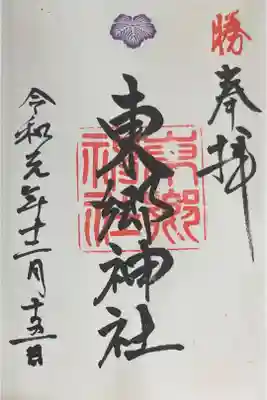 勝
奉拝
東郷神社
東郷神社
令和元年十二月十五日